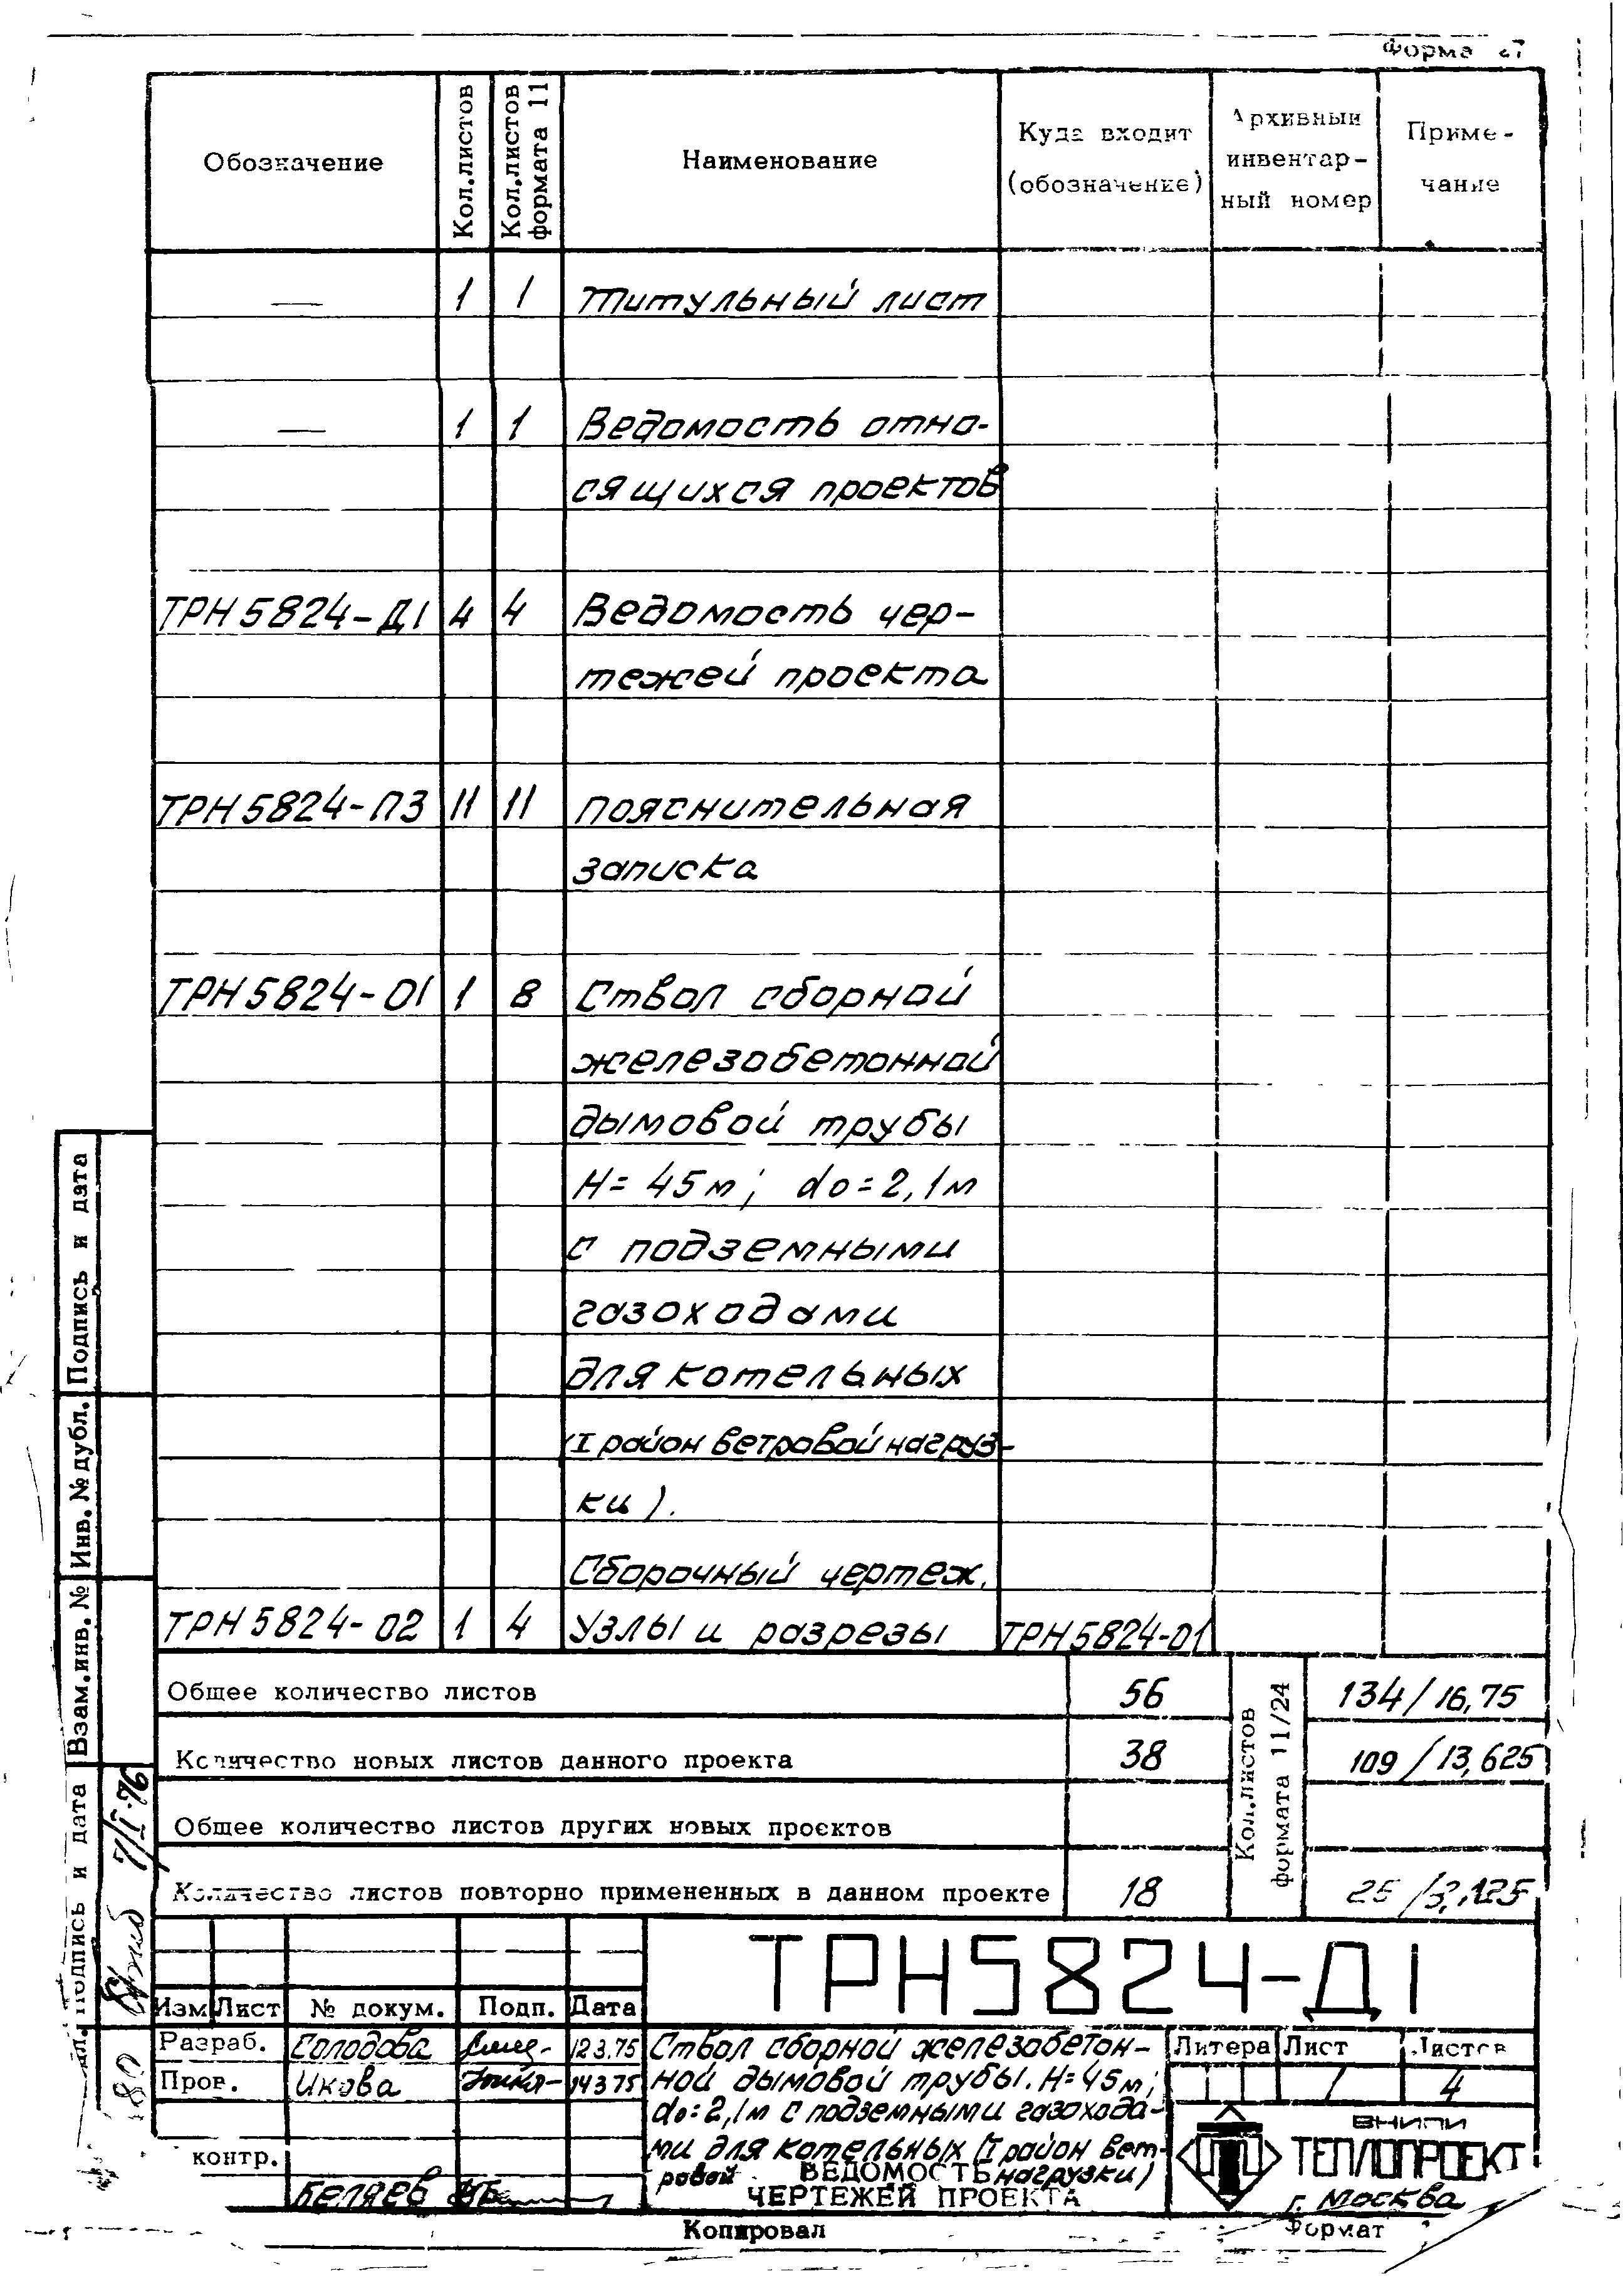 Форма 27
Обозначение
Кол.листов
Кол.листов
формата 11
Наименование
Куда входит
(обозначение)
Архивный
инвентар-
ный номер
Приме-
чание
— 1 1 Титульный лист
— 1 1 Ведомость отно-
сящихся проектов
ТРН5824-Д1 4 4 Ведомость чер-
тежей проекта
ТРН5824-ПЗ 11 11 Пояснительная
записка
ТРН5824-01 1 8 Ствол сборной
железобетонной
дымовой трубы
Н=45м; do=2,1м
с подземными
газоходами
для котельных
(I район ветровой нагруз-
ки).
Сборочный чертеж.
ТРН5824-02 1 4 Узлы и разрезы ТРН5824-01
Общее количество листов 56 134/16,75
Количество новых листов данного проекта 38 109/13,625
Общее количество листов других новых проектов
Количество листов повторно примененных в данном проекте 18 25/3,125
Кол.листов
формата 11/24
Подпись и дата
Инв.№ дубл.
Взам.инв.№
Подпись и дата
7/I-76
ТРН5824-Д1
Изм Лист № докум. Подп. Дата
Разраб. Солодова 12.3.75
Пров. Икова 14.3.75
контр.
Беляев
Ствол сборной железобетон-
ной дымовой трубы. Н=45м;
do=2,1м с подземными газохода-
ми для котельных (I район вет-
ровой нагрузки)
ВЕДОМОСТЬ
ЧЕРТЕЖЕЙ ПРОЕКТА
Литера Лист Листов
1 4
ВНИПИ
ТЕПЛОПРОЕКТ
г. Москва
Копировал Формат